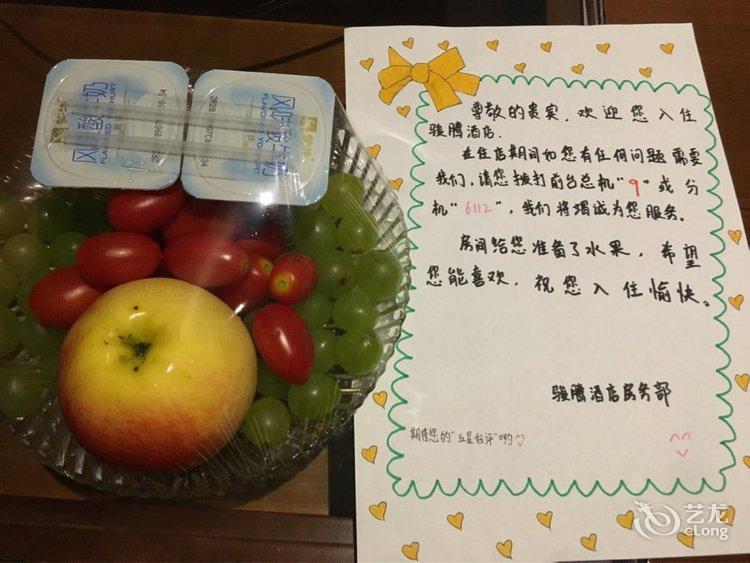 风味酸牛奶
FLAVORED YOGHURT
风味酸牛奶
尊敬的贵宾，欢迎您入住
骏腾酒店．
在住店期间如您有任何问题需要
我们，请您拨打前台总机"9"或分
机"6112"，我们将竭诚为您服务。
房间给您准备了水果，希望
您能喜欢，祝您入住愉快。
骏腾酒店房务部
期待您的"五星好评"哟
艺龙
eLong